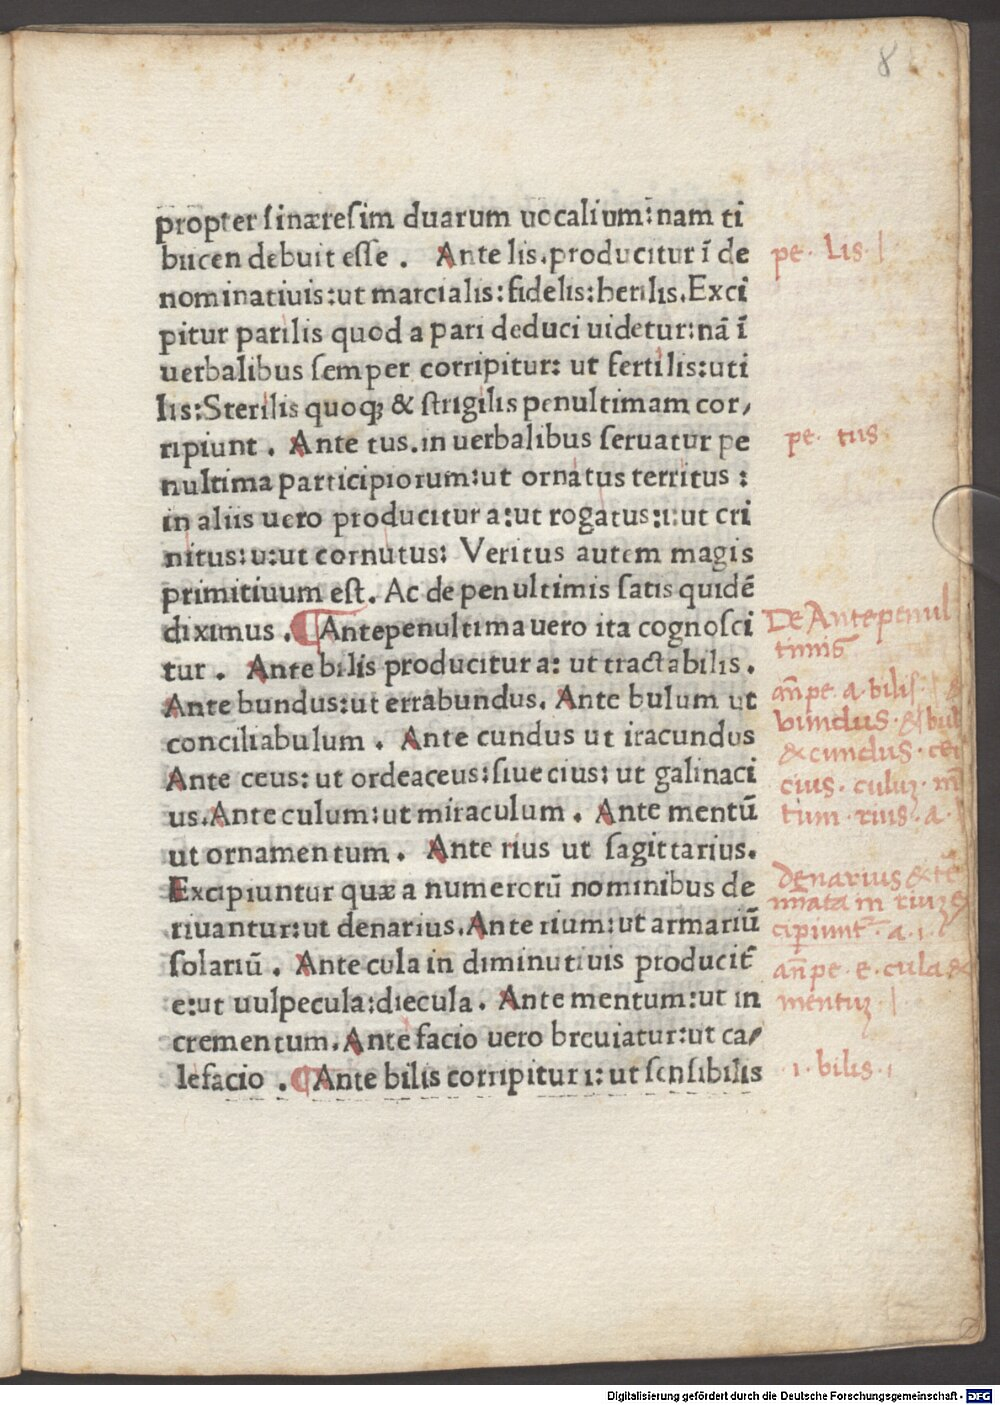 8
propter sinæresim duarum uocalium: nam ti
bucen debuit esse . Ante lis. producitur ī de
nominatiuis: ut marcialis: fidelis: herilis. Exci
pitur parilis quod a pari deduci uidetur: nā ī
uerbalibus semper corripitur: ut fertilis: uti
lis: Sterilis quoq; & strigilis penultimam cor/
ripiunt . Ante tus. in uerbalibus seruatur pe
nultima participiorum: ut ornatus territus :
in aliis uero producitur a: ut rogatus: i: ut cri
nitus: u: ut cornutus: Veritus autem magis
primitiuum est. Ac de penultimis satis quidē
diximus . Antepenultima uero ita cognosci
tur . Ante bilis producitur a: ut tractabilis .
Ante bundus: ut errabundus. Ante bulum ut
conciliabulum . Ante cundus ut iracundus
Ante ceus: ut ordeaceus: siue cius: ut galinaci
us. Ante culum: ut miraculum . Ante mentū
ut ornamentum . Ante rius ut sagittarius.
Excipiuntur quæ a numerorū nominibus de
riuantur: ut denarius. Ante rium: ut armariū
solariū . Ante cula in diminutiuis producit̄
e: ut uulpecula: diecula . Ante mentum: ut in
crementum. Ante facio uero breuiatur: ut ca/
lefacio . Ante bilis corripitur i: ut sensibilis
pe. Lis.
pe. tus
De Antepenul
timis
an̄pe. a. bilis
bundus. & bul
& cundus. cei
cius. culuʒ. m̄
tum. rius. a.
denarius &
in riuʒ
a. i.
an̄pe. e. cula &
mentuʒ.
i. bilis.
Digitalisierung gefördert durch die Deutsche Forschungsgemeinschaft - DFG